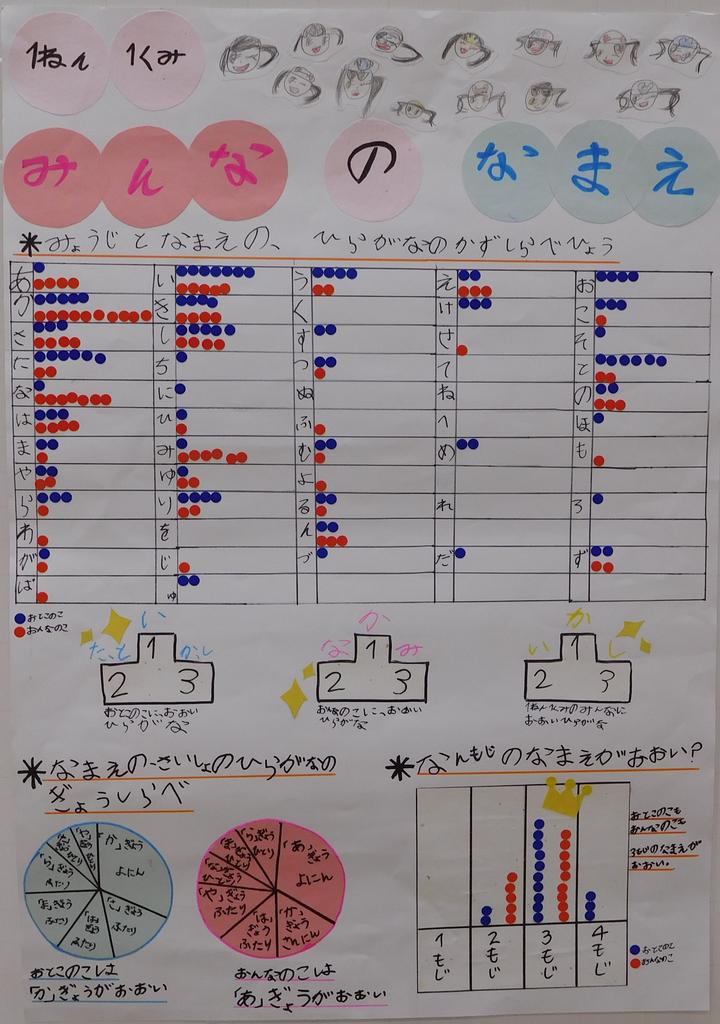 1ねん 1くみ
みんな の なまえ
*みょうじとなまえの、ひらがなのかずしらべひょう
あ い う え お
か き く け こ
さ し す せ そ
た ち つ て と
な に ぬ ね の
は ひ ふ へ ほ
ま み む め も
や ゆ よ
ら り る れ ろ
わ を ん
が じ づ だ ず
ば ゅ
おとこのこ
おんなのこ
い
た、と 1 か、し
2 3
おとこのこにおおい
ひらがな
か
な 1 み
2 3
おんなのこにおおい
ひらがな
か
い 1 し
2 3
1ねん1くみのみんなに
おおいひらがな
*なまえのさいしょのひらがなの
ぎょうしらべ
「か」ぎょう
よにん
「さ」ぎょう
ふたり
「は」ぎょう
ふたり
「ま」ぎょう
ふたり
「ら」ぎょう
ふたり
おとこのこしは
「か」ぎょうがおおい
「あ」ぎょう
よにん
「か」ぎょう
さんにん
「は」ぎょう
ふたり
「や」ぎょう
ふたり
おんなのこしは
「あ」ぎょうがおおい
*なんもじのなまえがおおい?
おとこのこも
おんなのこも
3もじのなまえが
おおい。
1もじ 2もじ 3もじ 4もじ
おとこのこ
おんなのこ